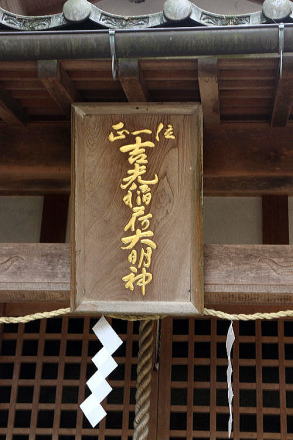 正一位
吉光稲荷大明神